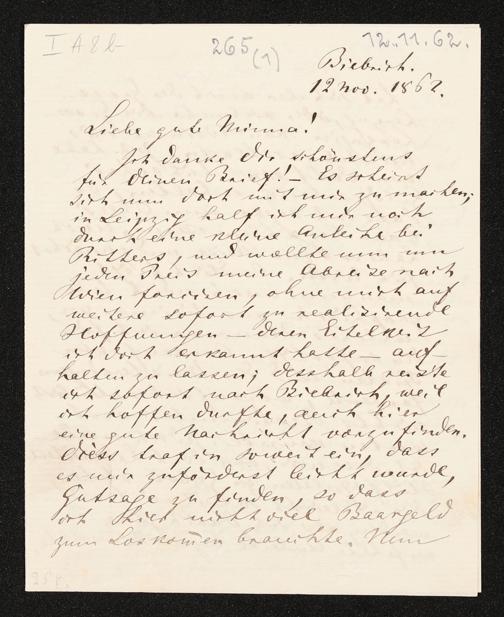 I A 8 b
265
(1)
12.11.62.
Biebrich.
12 Nov. 1862.
Liebe gute Minna!
Ich danke Dir schönstens
für Deinen Brief! – Es scheint
sich nun dort mit mir zu machen;
in Leipzig half ich mir noch
durch eine kleine Anleihe bei
Ritters, und wollte nun um
jeden Preis meine Abreise nach
Wien forciren, ohne mich auf
weitere sofort zu realisirende
Hoffnungen – deren Eitelkeit
ich dort erkannt hatte – auf-
halten zu lassen; desshalb reiste
ich sofort nach Biebrich, weil
ich hoffen durfte, auch hier
eine gute Nachricht vorzufinden.
Diess traf in soweit ein, dass
es mir zuförderst leicht wurde,
Gutsage zu finden, so dass
ich hier nicht viel Baargeld
zum Loskom̅en brauchte. Nun